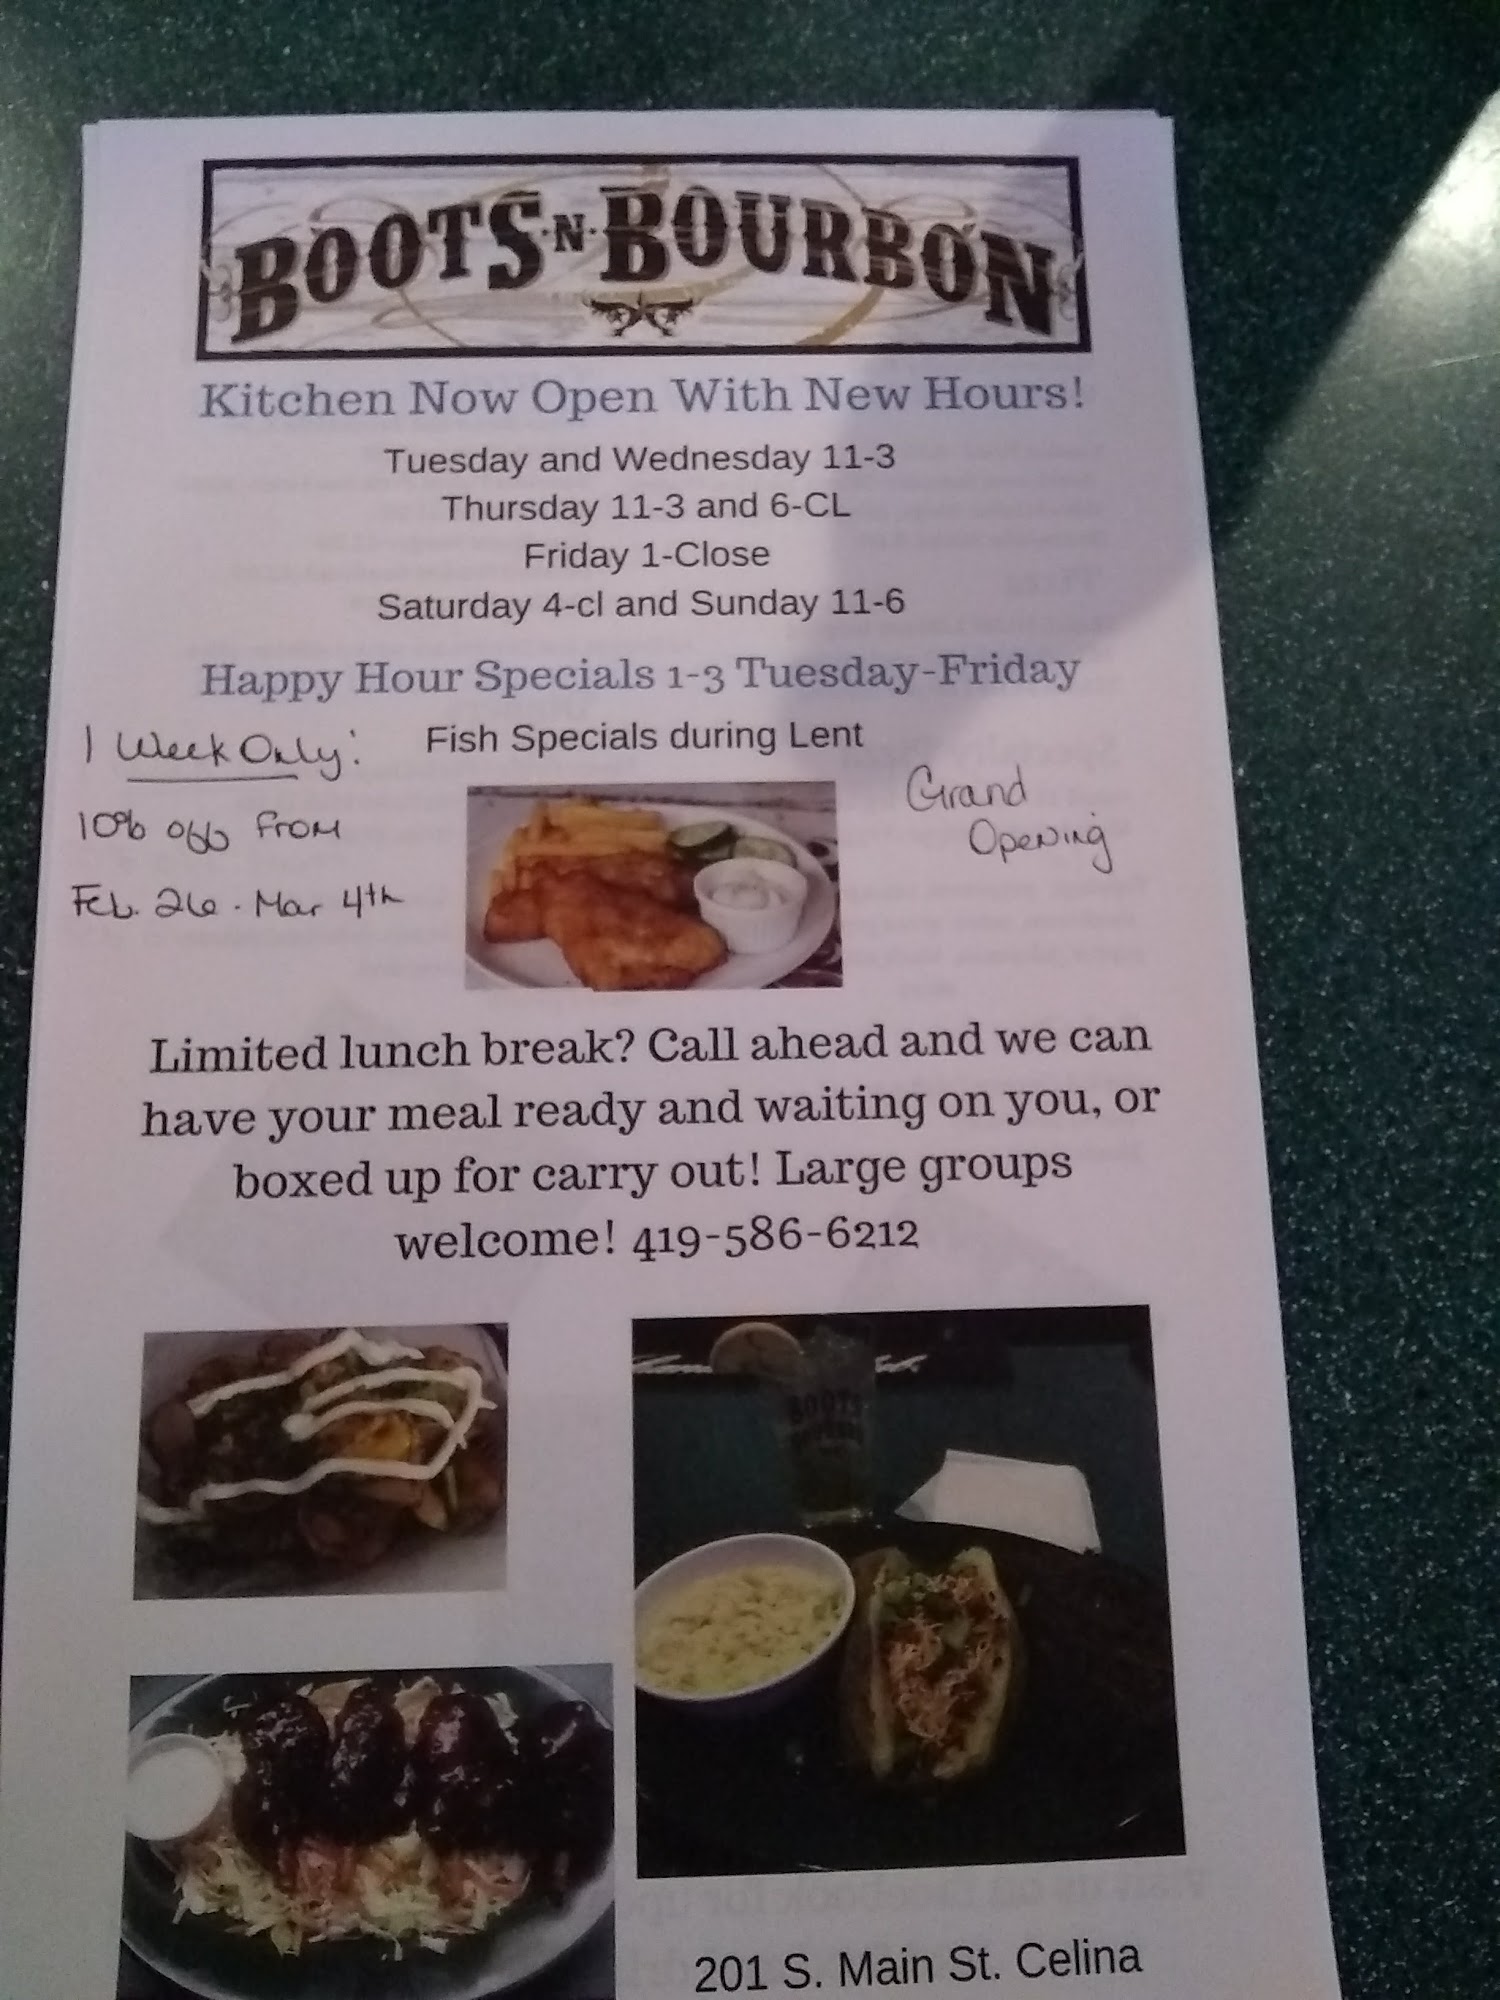 BOOTS·N·BOURBON
Kitchen Now Open With New Hours!
Tuesday and Wednesday 11-3
Thursday 11-3 and 6-CL
Friday 1-Close
Saturday 4-cl and Sunday 11-6
Happy Hour Specials 1-3 Tuesday-Friday
Fish Specials during Lent
1 Week Only:
10% off from
Feb. 26 - Mar 4th
Grand
Opening
Limited lunch break? Call ahead and we can
have your meal ready and waiting on you, or
boxed up for carry out! Large groups
welcome! 419-586-6212
BOOTS
BOURBON
201 S. Main St. Celina